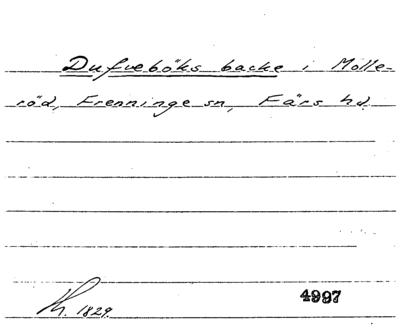 Dufveböks backe i Molle-
röd, Frenninge sn, Färs hd.
Kh. 1829.
4997